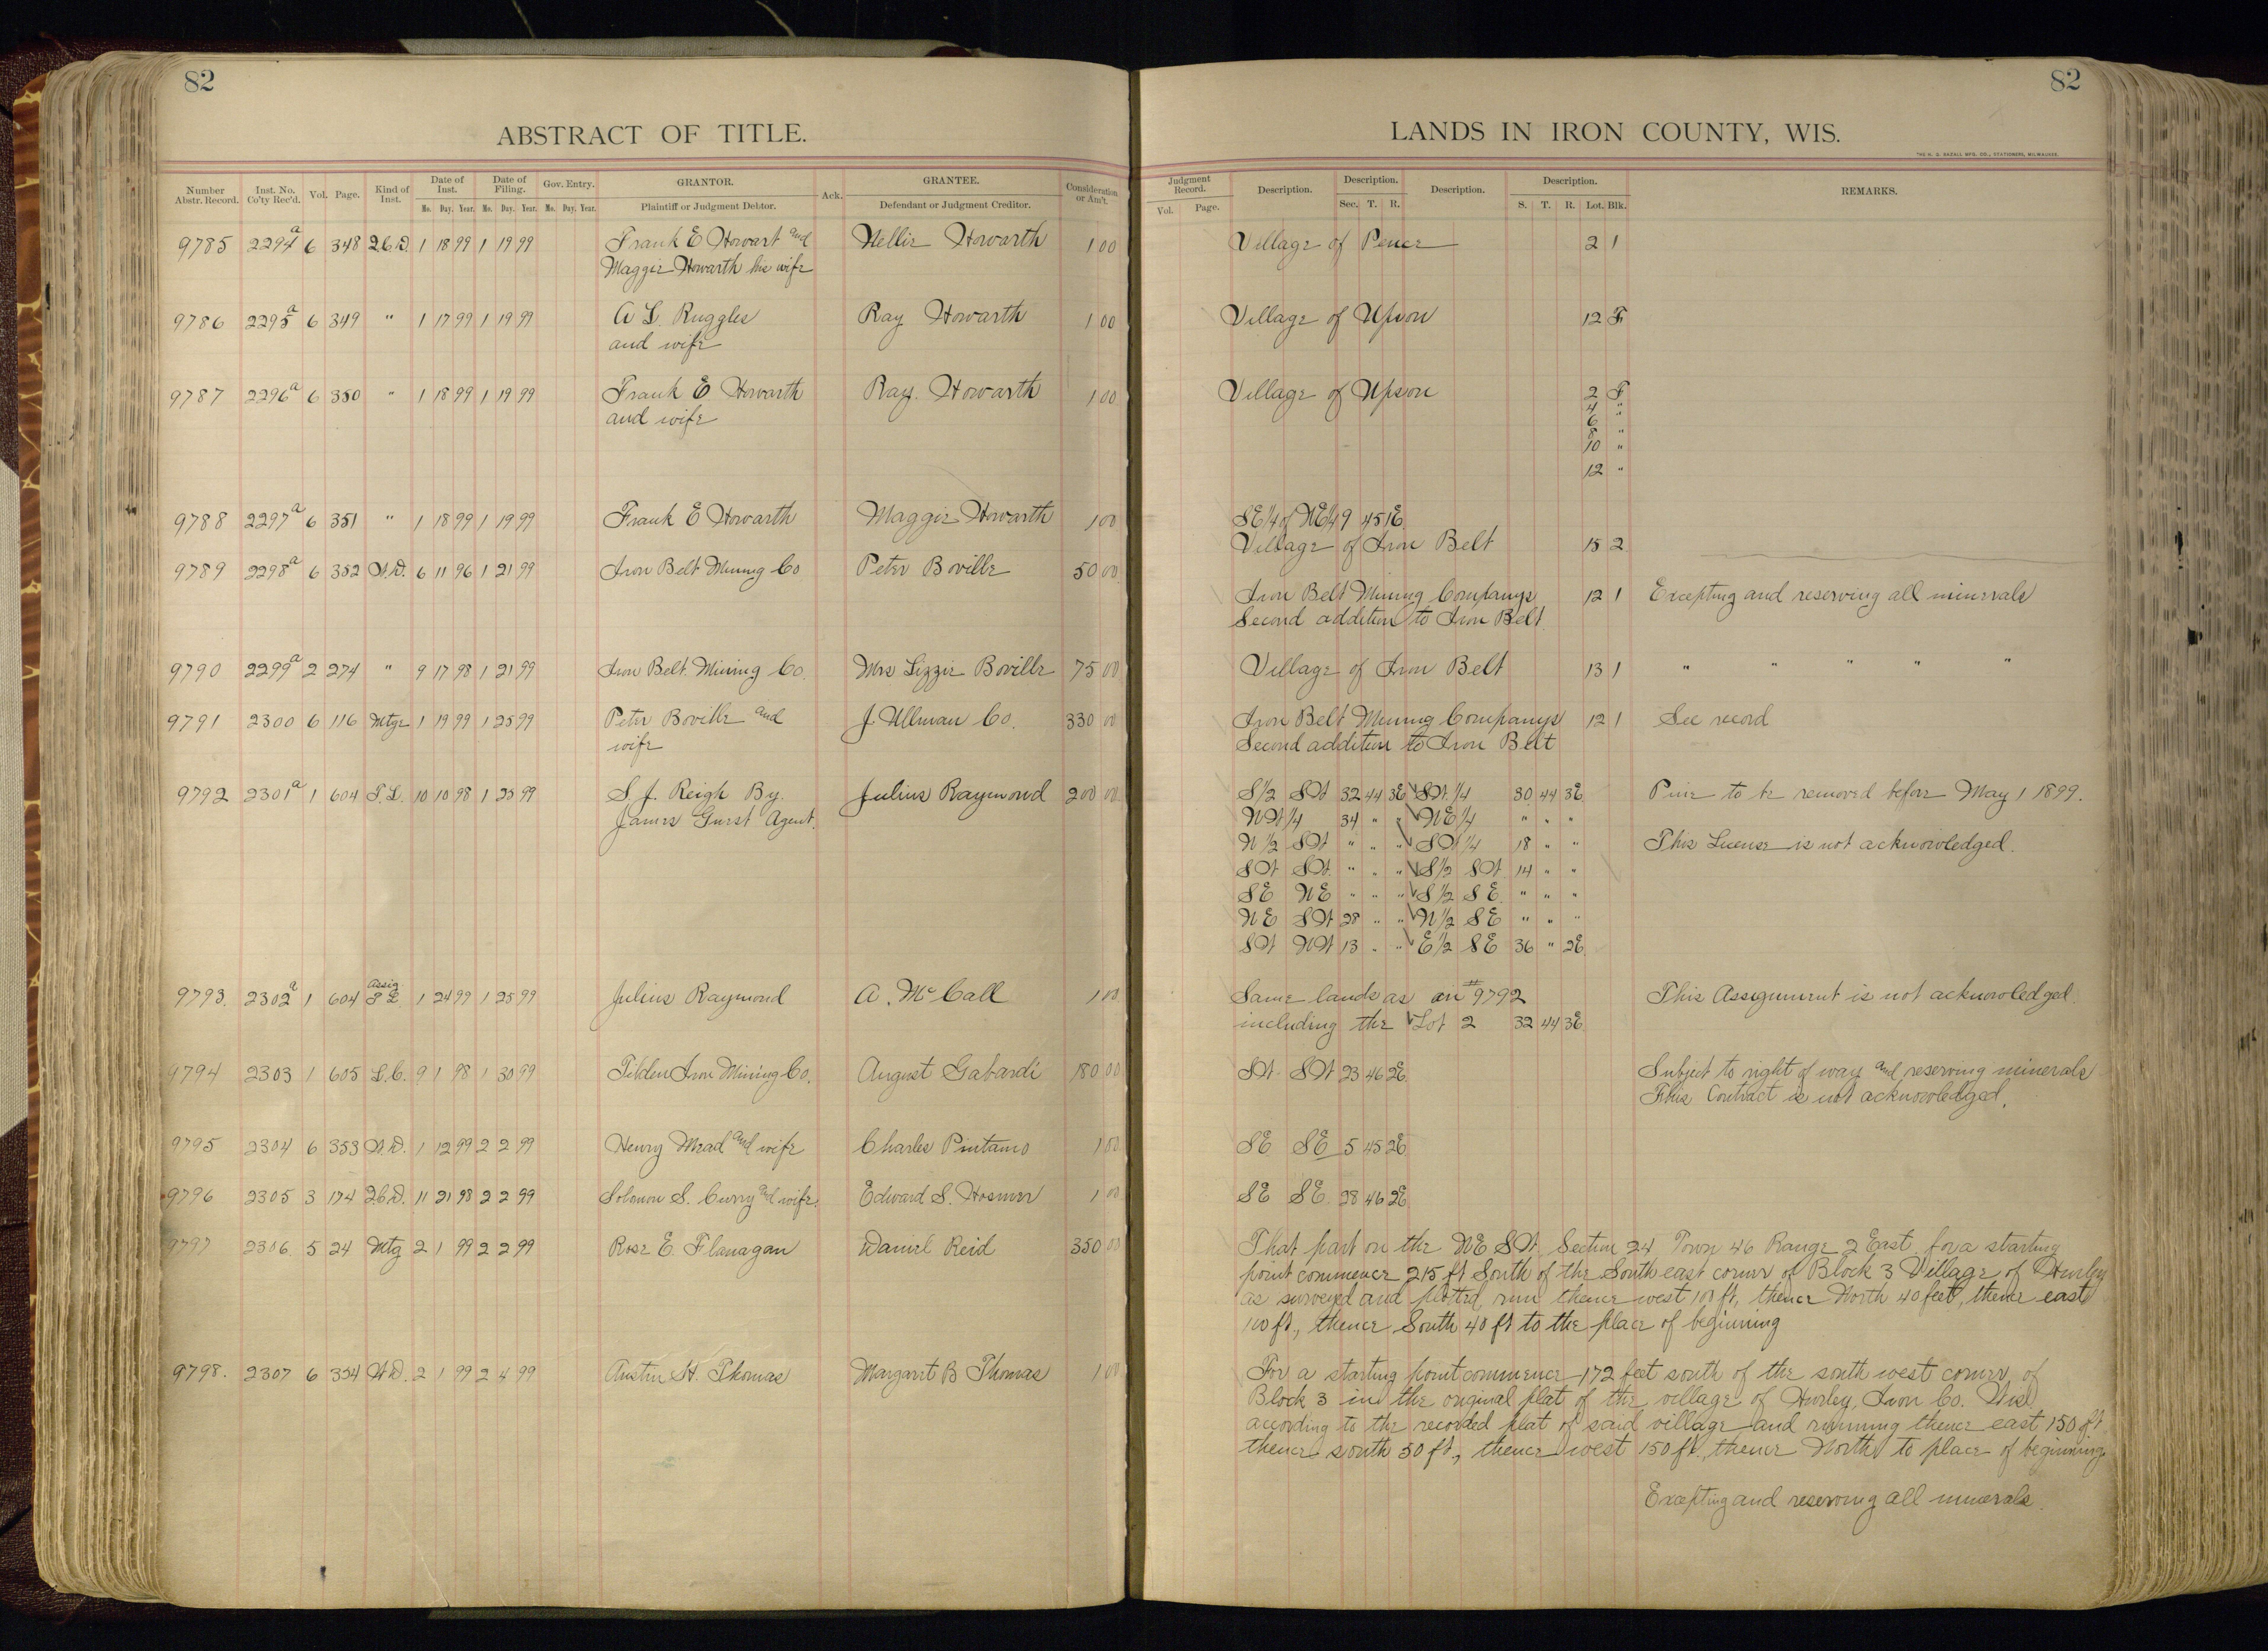 82
ABSTRACT OF TITLE.
Number Abstr. Record. Inst. No. Co'ty Rec'd. Vol. Page. Kind of Inst. Date of Inst. Mo. Day. Year. Date of Filing. Mo. Day. Year. Gov. Entry. Mo. Day. Year. GRANTOR. Plaintiff or Judgment Debtor. Ack. GRANTEE. Defendant or Judgment Creditor. Consideration or Am't.
9785 2294a 6 348 2.C.D. 1 18 99 1 19 99 Frank E Howart and Nellie Howarth 1 00
Maggie Howarth his wife
9786 2295a 6 349 " 1 17 99 1 19 99 A L. Ruggles Ray Howarth 1 00
and wife
9787 2296a 6 350 " 1 18 99 1 19 99 Frank E Howarth Ray. Howarth 1 00
and wife
9788 2297a 6 351 " 1 18 99 1 19 99 Frank E Howarth Maggie Howarth 1 00
9789 2298a 6 352 W.D. 6 11 96 1 21 99 Iron Belt Mining Co Peter Boville 50 00
9790 2299a 2 274 " 9 17 98 1 21 99 Iron Belt Mining Co. Mrs Lizzie Boville 75 00
9791 2300 6 116 Mtge 1 19 99 1 25 99 Peter Boville and J. Ullman Co. 330 00
wife
9792 2301a 1 604 T.L. 10 10 98 1 25 99 S. J. Reigh By. Julius Raymond 200 00
James Guest Agent.
9793. 2302a 1 604 Assig T L 1 24 99 1 25 99 Julius Raymond A. McCall 1 00
9794 2303 1 605 L.C. 9 1 98 1 30 99 Tilden Iron Mining Co. August Gabardi 180 00
9795 2304 6 353 W.D. 1 12 99 2 2 99 Henry Mead and wife Charles Pintamo 1 00
9796 2305 3 174 2.C.D. 11 21 98 2 2 99 Solomon S. Curry and wife. Edward S. Hosmer 1 00
9797 2306. 5 24 Mtg 2 1 99 2 2 99 Rose E. Flanagan Daniel Reid 350 00
9798. 2307 6 354 W.D. 2 1 99 2 4 99 Austin W. Thomas Margaret B Thomas 1 00
82
LANDS IN IRON COUNTY, WIS.
THE H. G. RAZALL MFG. CO., STATIONERS, MILWAUKEE.
Judgment Record. Vol. Page. Description. Description. Sec. T. R. Description. Description. S. T. R. Lot. Blk. REMARKS.
Village of Pence 2 1
Village of Upson 12 F
Village of Upson 2 F
4 "
6 "
8 "
10 "
12 "
SE 1/4 of NE 1/4 9 45 1E
Village of Iron Belt 15 2
Iron Belt Mining Companys 12 1 Excepting and reserving all minerals
Second addition to Iron Belt.
Village of Iron Belt 13 1 " " " " "
Iron Belt Mining Companys 12 1 See record
Second addition to Iron Belt
S 1/2 SW 32 44 3E SW 1/4 30 44 3E Pine to be removed before May 1 1899.
NW 1/4 34 " " NE 1/4 " " "
N 1/2 SW " " " SW 1/4 18 " " This License is not acknowledged.
SW SW. " " " S 1/2 SW 14 " "
SE NE " " " S 1/2 SE. " " "
NE SW 28 " " N 1/2 SE " " "
SW NW 13 " " E 1/2 SE 36 " 2E
Same lands as in #9792 This Assignment is not acknowledged.
including the Lot 2 32 44 3E
SW SW 23 46 2E Subject to right of way and reserving minerals
This Contract is not acknowledged.
SE SE 5 45 2E
SE SE. 28 46 2E
That part on the NE SW Section 24 Town 46 Range 2 East for a starting
point commence 215 ft South of the South east corner of Block 3 Village of Hurley
as surveyed and platted, run thence west 100 ft, thence North 40 feet, thence east
100 ft, thence South 40 ft to the place of beginning
For a starting point commence 172 feet south of the south west corner of
Block 3 in the original plat of the village of Hurley, Iron Co. Wis.
according to the recorded plat of said village and running thence east 150 ft
thence south 50 ft., thence west 150 ft., thence North to place of beginning.
Excepting and reserving all minerals.